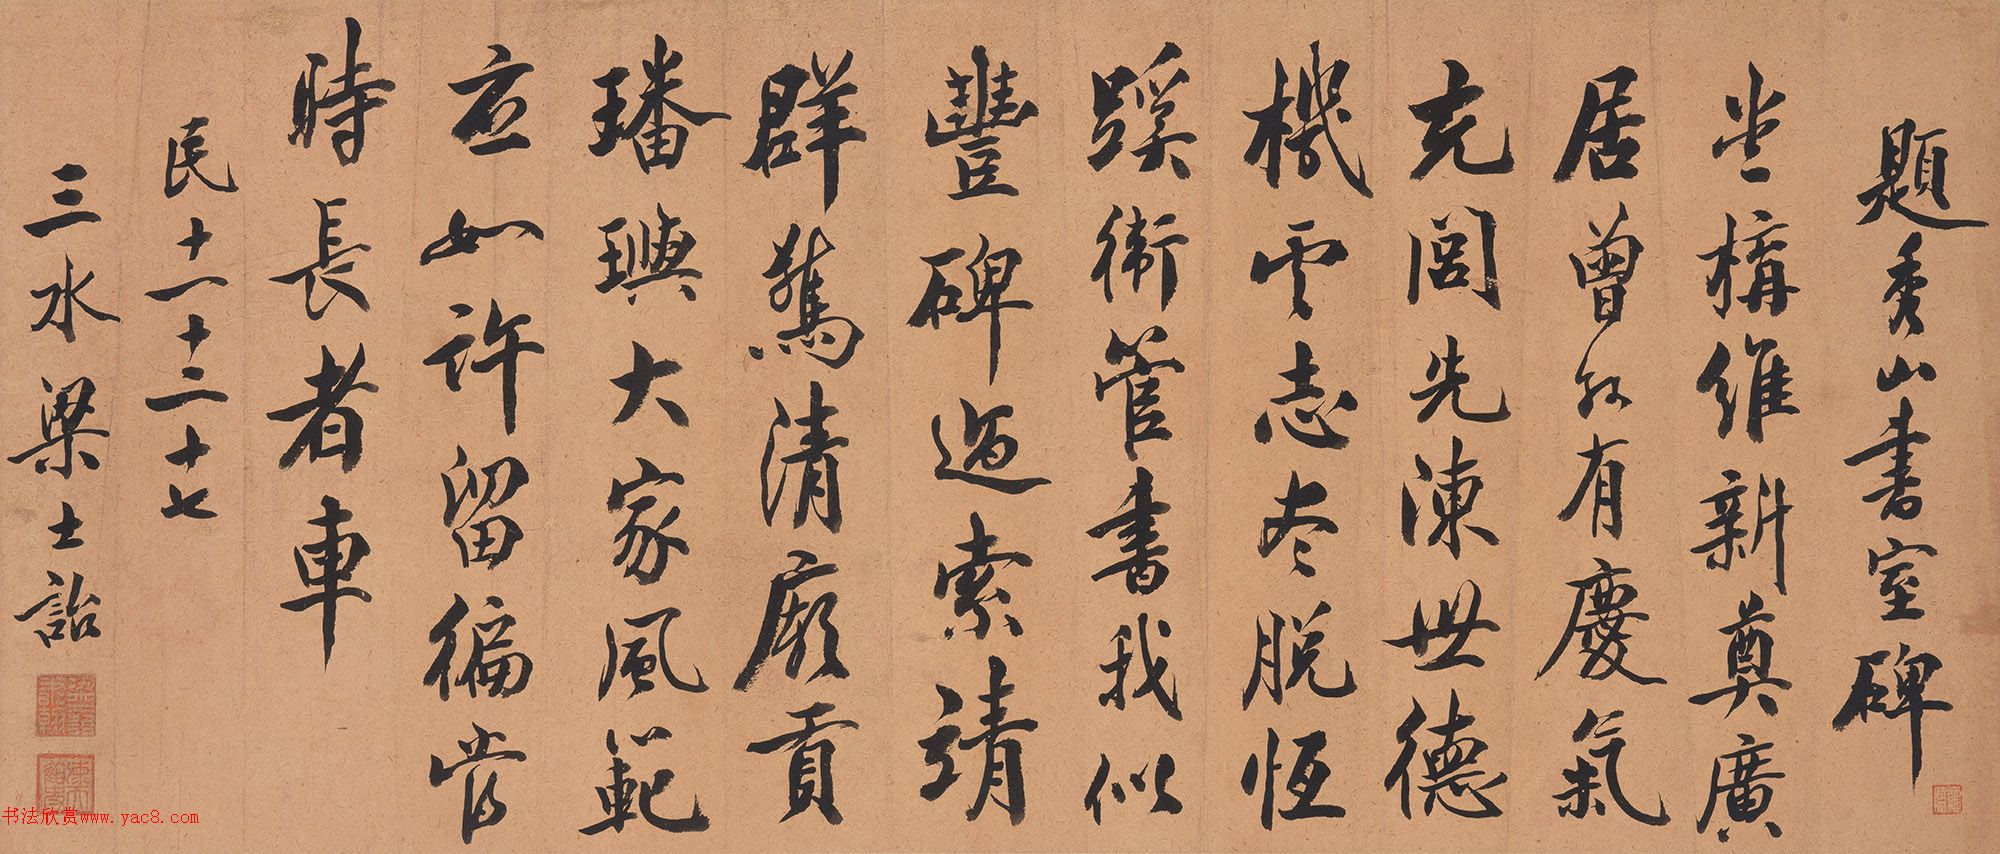 題秀山書室碑
堂構維新奠廣
居曾孫有慶氣
充閭先陳世德
機雲志尽脫恆
蹊衛管書我似
豐碑過索靖
群驚清廟貢
璠璵大家風範
应如許留徧當
時長者車
民十一十二十七
三水梁士詒
书法欣赏www.yac8.com